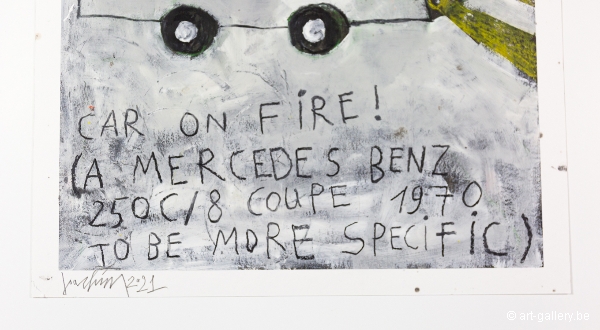 CAR ON FIRE!
(A MERCEDES BENZ
250C/8 COUPE 1970
TO BE MORE SPECIFIC)
2021
© art-gallery.be